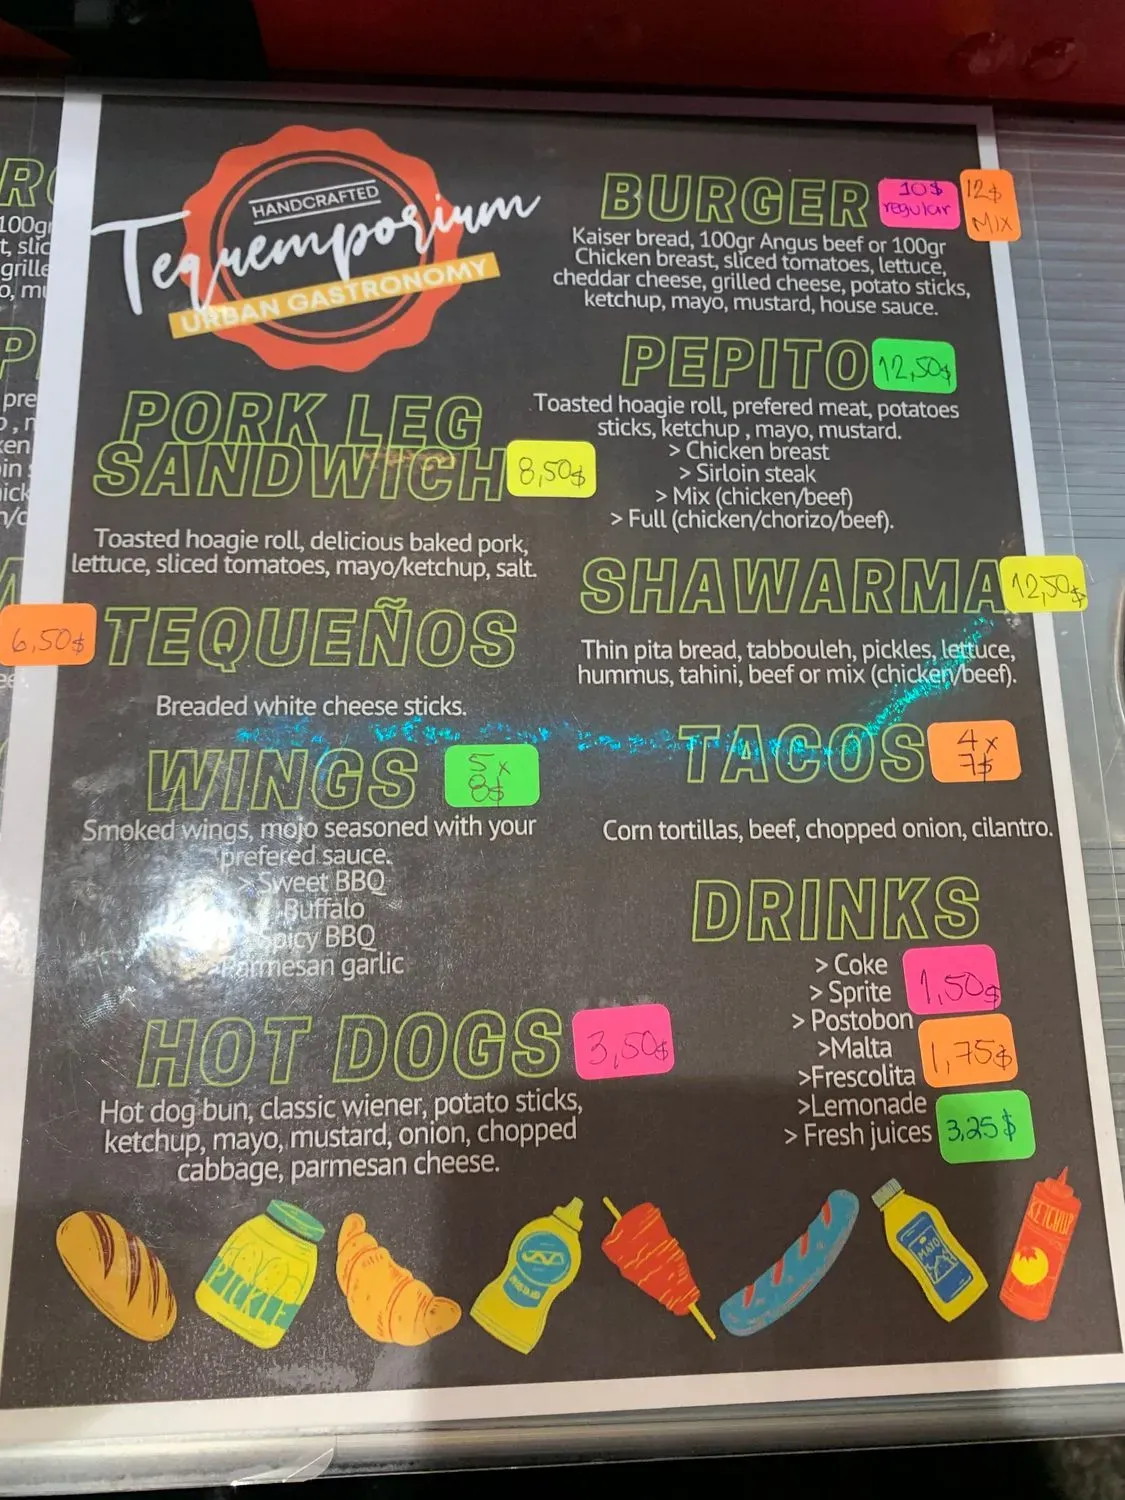 HANDCRAFTED
Tequemporium
URBAN GASTRONOMY
PORK LEG
SANDWICH 8,50$
Toasted hoagie roll, delicious baked pork,
lettuce, sliced tomatoes, mayo/ketchup, salt.
6,50$ TEQUEÑOS
Breaded white cheese sticks.
WINGS 5 x
8$
Smoked wings, mojo seasoned with your
prefered sauce.
> Sweet BBQ
Buffalo
Spicy BBQ
Parmesan garlic
HOT DOGS 3,50$
Hot dog bun, classic wiener, potato sticks,
ketchup, mayo, mustard, onion, chopped
cabbage, parmesan cheese.
BURGER 10$ regular 12$ MIX
Kaiser bread, 100gr Angus beef or 100gr
Chicken breast, sliced tomatoes, lettuce,
cheddar cheese, grilled cheese, potato sticks,
ketchup, mayo, mustard, house sauce.
PEPITO 12,50$
Toasted hoagie roll, prefered meat, potatoes
sticks, ketchup , mayo, mustard.
> Chicken breast
> Sirloin steak
> Mix (chicken/beef)
> Full (chicken/chorizo/beef).
SHAWARMA 12,50$
Thin pita bread, tabbouleh, pickles, lettuce,
hummus, tahini, beef or mix (chicken/beef).
TACOS 4 x
7$
Corn tortillas, beef, chopped onion, cilantro.
DRINKS
> Coke
> Sprite 1,50$
> Postobon
>Malta 1,75$
>Frescolita
>Lemonade
> Fresh juices 3,25$
PICKLE
MUSTARD
MAYO
KETCHUP